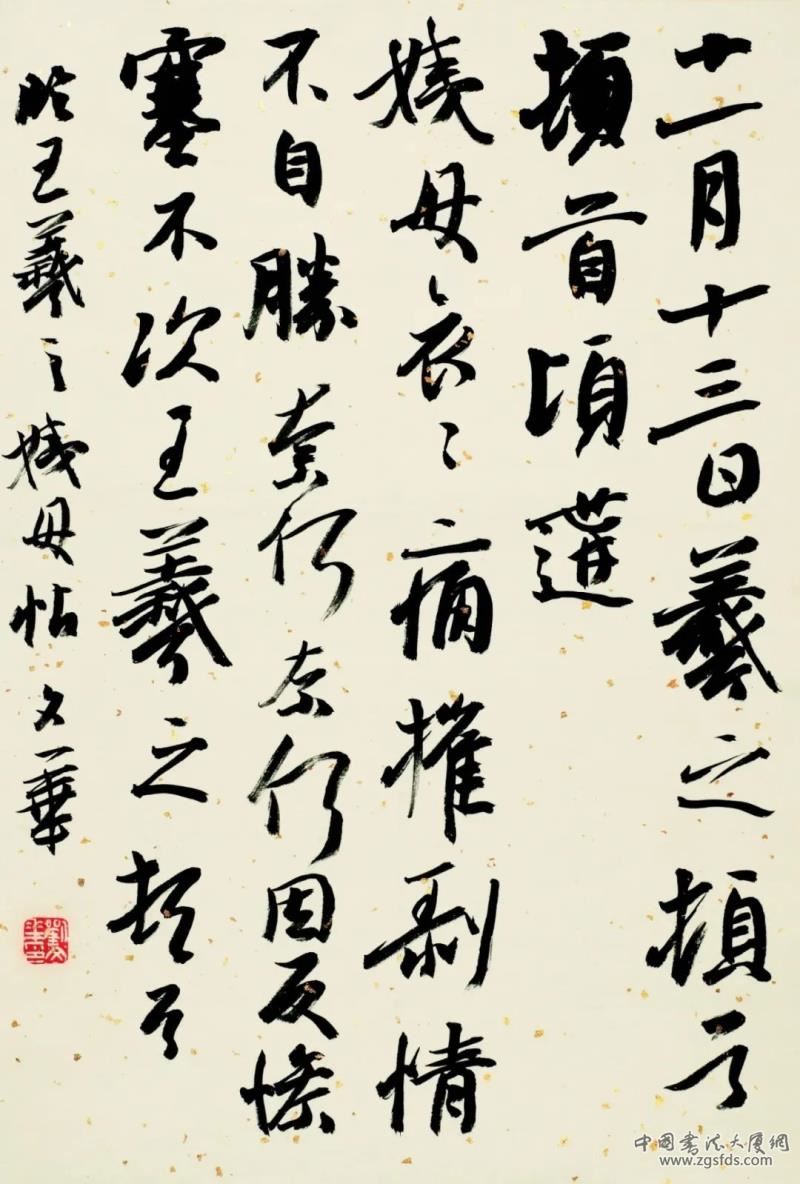 十一月十三日羲之頓首
頓首頃遘
姨母哀〻痛摧剥情
不自勝奈何奈何因反慘
塞不次王羲之頓首
临王羲之姨母帖 文華
中國書法大厦網
www.zgsfds.com